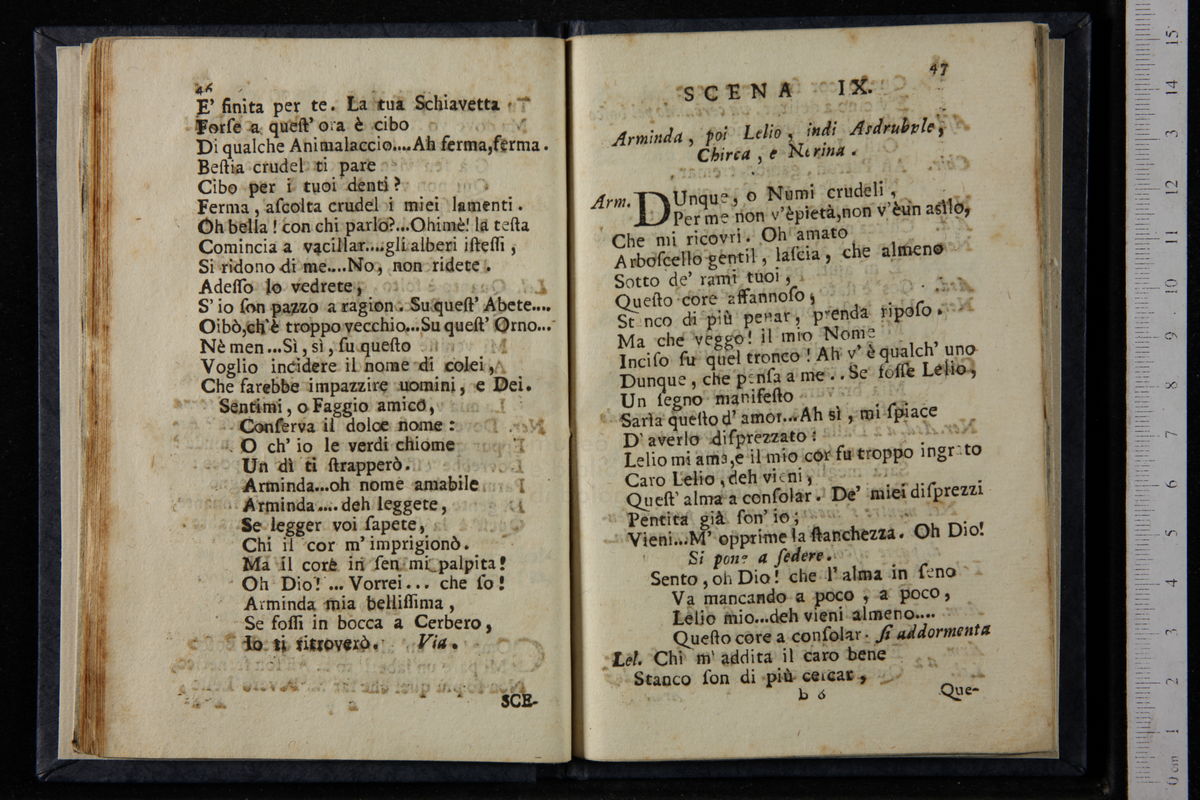 46
E' finita per te. La tua Schiavetta
Forſe a queſt' ora è cibo
Di qualche Animalaccio....Ah ferma,ferma.
Beſtia crudel ti pare
Cibo per i tuoi denti?
Ferma, aſcolta crudel i miei lamenti.
Oh bella! con chi parlo?...Ohimè! la teſta
Comincia a vacillar....gli alberi iſteſſi,
Si ridono di me....No, non ridete.
Adeſſo lo vedrete,
S' io ſon pazzo a ragion. Su queſt' Abete....
Oibò,ch'è troppo vecchio...Su queſt' Orno...
Nè men...Sì, sì, ſu queſto
Voglio incidere il nome di colei,
Che farebbe impazzire uomini, e Dei.
Sentimi, o Faggio amico,
Conſerva il dolce nome:
O ch' io le verdi chiome
Un dì ti ſtrapperò.
Arminda...oh nome amabile
Arminda....deh leggete,
Se legger voi ſapete,
Chi il cor m'imprigionò.
Ma il core in ſen mi palpita!
Oh Dio!...Vorrei... che ſo!
Arminda mia belliſſima,
Se foſſi in bocca a Cerbero,
Io ti ritroverò. Via.
SCE-
47
SCENA IX.
Arminda, poi Lelio, indi Asdrubale,
Chirca, e Nerina.
Arm. DUnque, o Numi crudeli,
Per me non v'è pietà,non v'è un asilo,
Che mi ricovri. Oh amato
Arboſcello gentil, laſcia, che almeno
Sotto de' rami tuoi,
Queſto core affannoſo,
Stanco di più penar, prenda ripoſo.
Ma che veggo! il mio Nome
Inciſo fu quel tronco! Ah v' è qualch' uno
Dunque, che penſa a me.. Se foſſe Lelio,
Un ſegno manifeſto
Sarìa queſto d' amor...Ah sì, mi ſpiace
D' averlo diſprezzato:
Lelio mi ama,e il mio cor fu troppo ingrato
Caro Lelio, deh vieni,
Queſt' alma a conſolar. De' miei diſprezzi
Pentita già ſon' io;
Vieni...M' opprime la ſtanchezza. Oh Dio!
Si pone a ſedere.
Sento, oh Dio! che l' alma in ſeno
Va mancando a poco, a poco,
Lelio mio...deh vieni almeno....
Queſto core a conſolar. ſi addormenta
Lel. Chi m' addita il caro bene
Stanco ſon di più cercar,
b 6
Que-